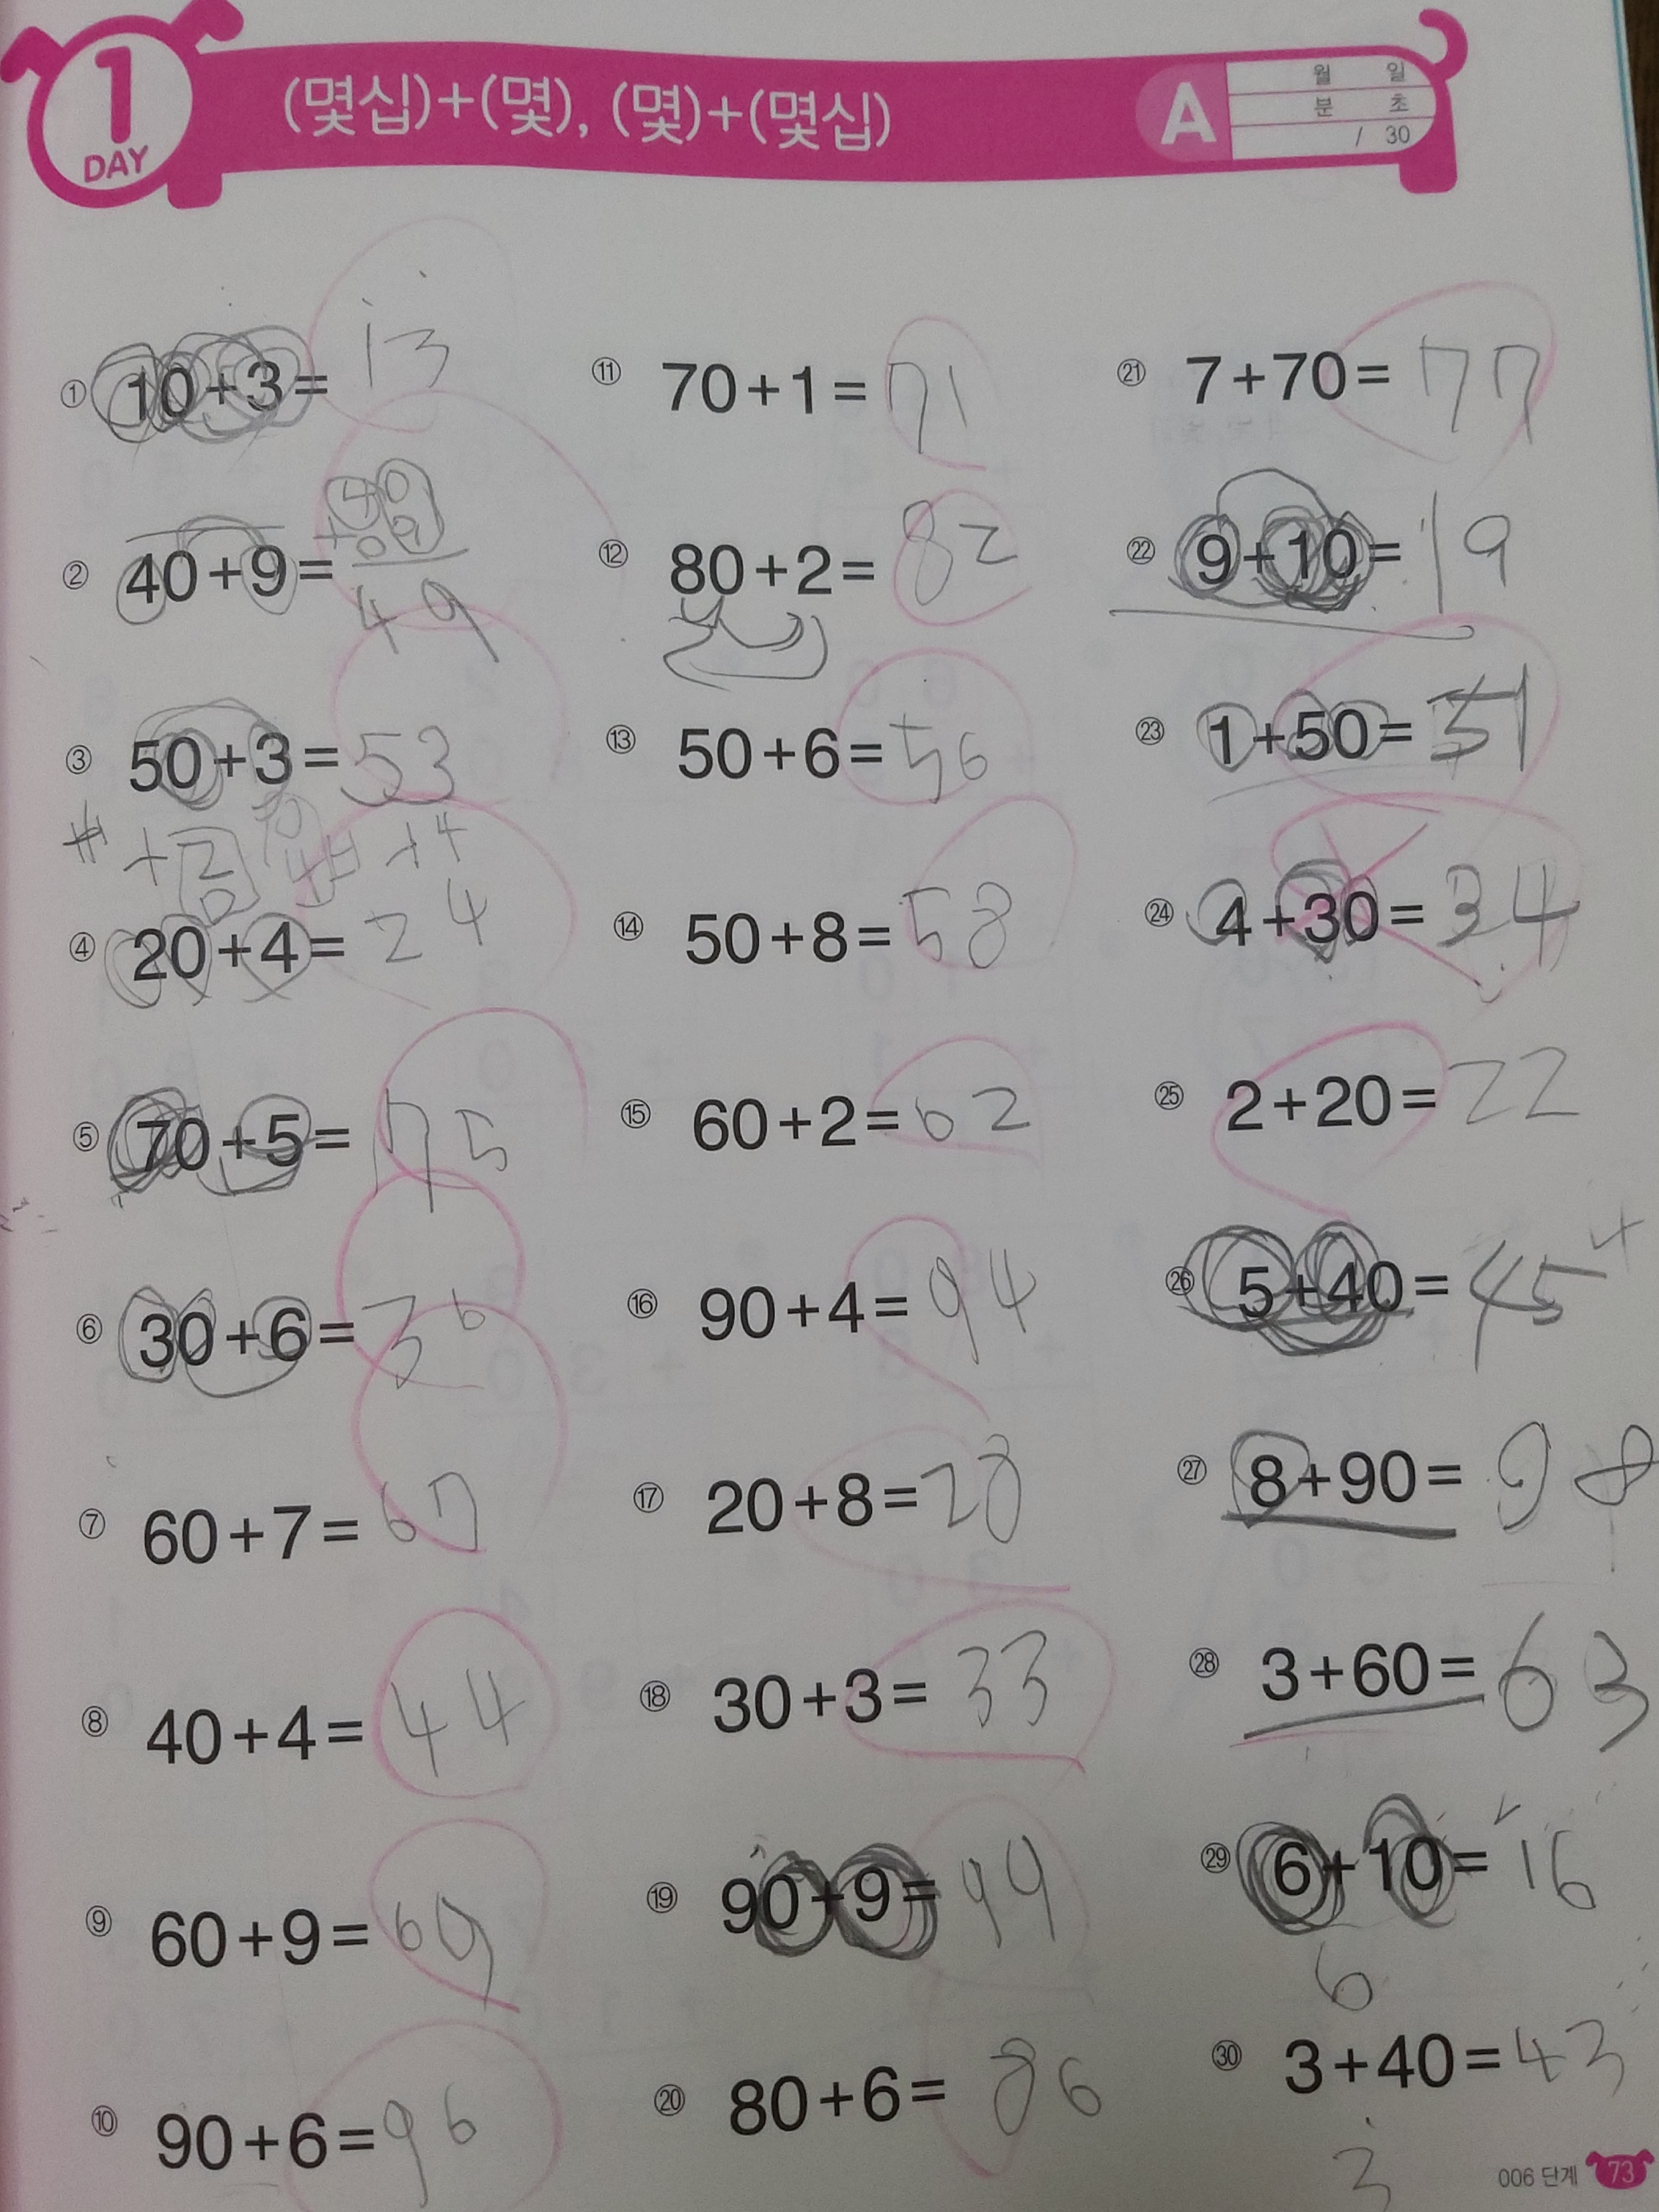 1
DAY
(몇십)+(몇), (몇)+(몇십)
A
월 일
분 초
/ 30
① 10+3= 13
② 40+9=
40
+09
49
③ 50+3= 53
④ 20+4= 24
⑤ 70+5= 75
⑥ 30+6= 36
⑦ 60+7= 67
⑧ 40+4= 44
⑨ 60+9= 69
⑩ 90+6= 96
⑪ 70+1= 71
⑫ 80+2= 82
⑬ 50+6= 56
⑭ 50+8= 58
⑮ 60+2= 62
⑯ 90+4= 94
⑰ 20+8= 28
⑱ 30+3= 33
⑲ 90+9= 99
⑳ 80+6= 86
㉑ 7+70= 77
㉒ 9+10= 19
㉓ 1+50= 51
㉔ 4+30= 34
㉕ 2+20= 22
㉖ 5+40= 45
㉗ 8+90= 98
㉘ 3+60= 63
㉙ 6+10= 16
6
㉚ 3+40= 43
3
006 단계 73